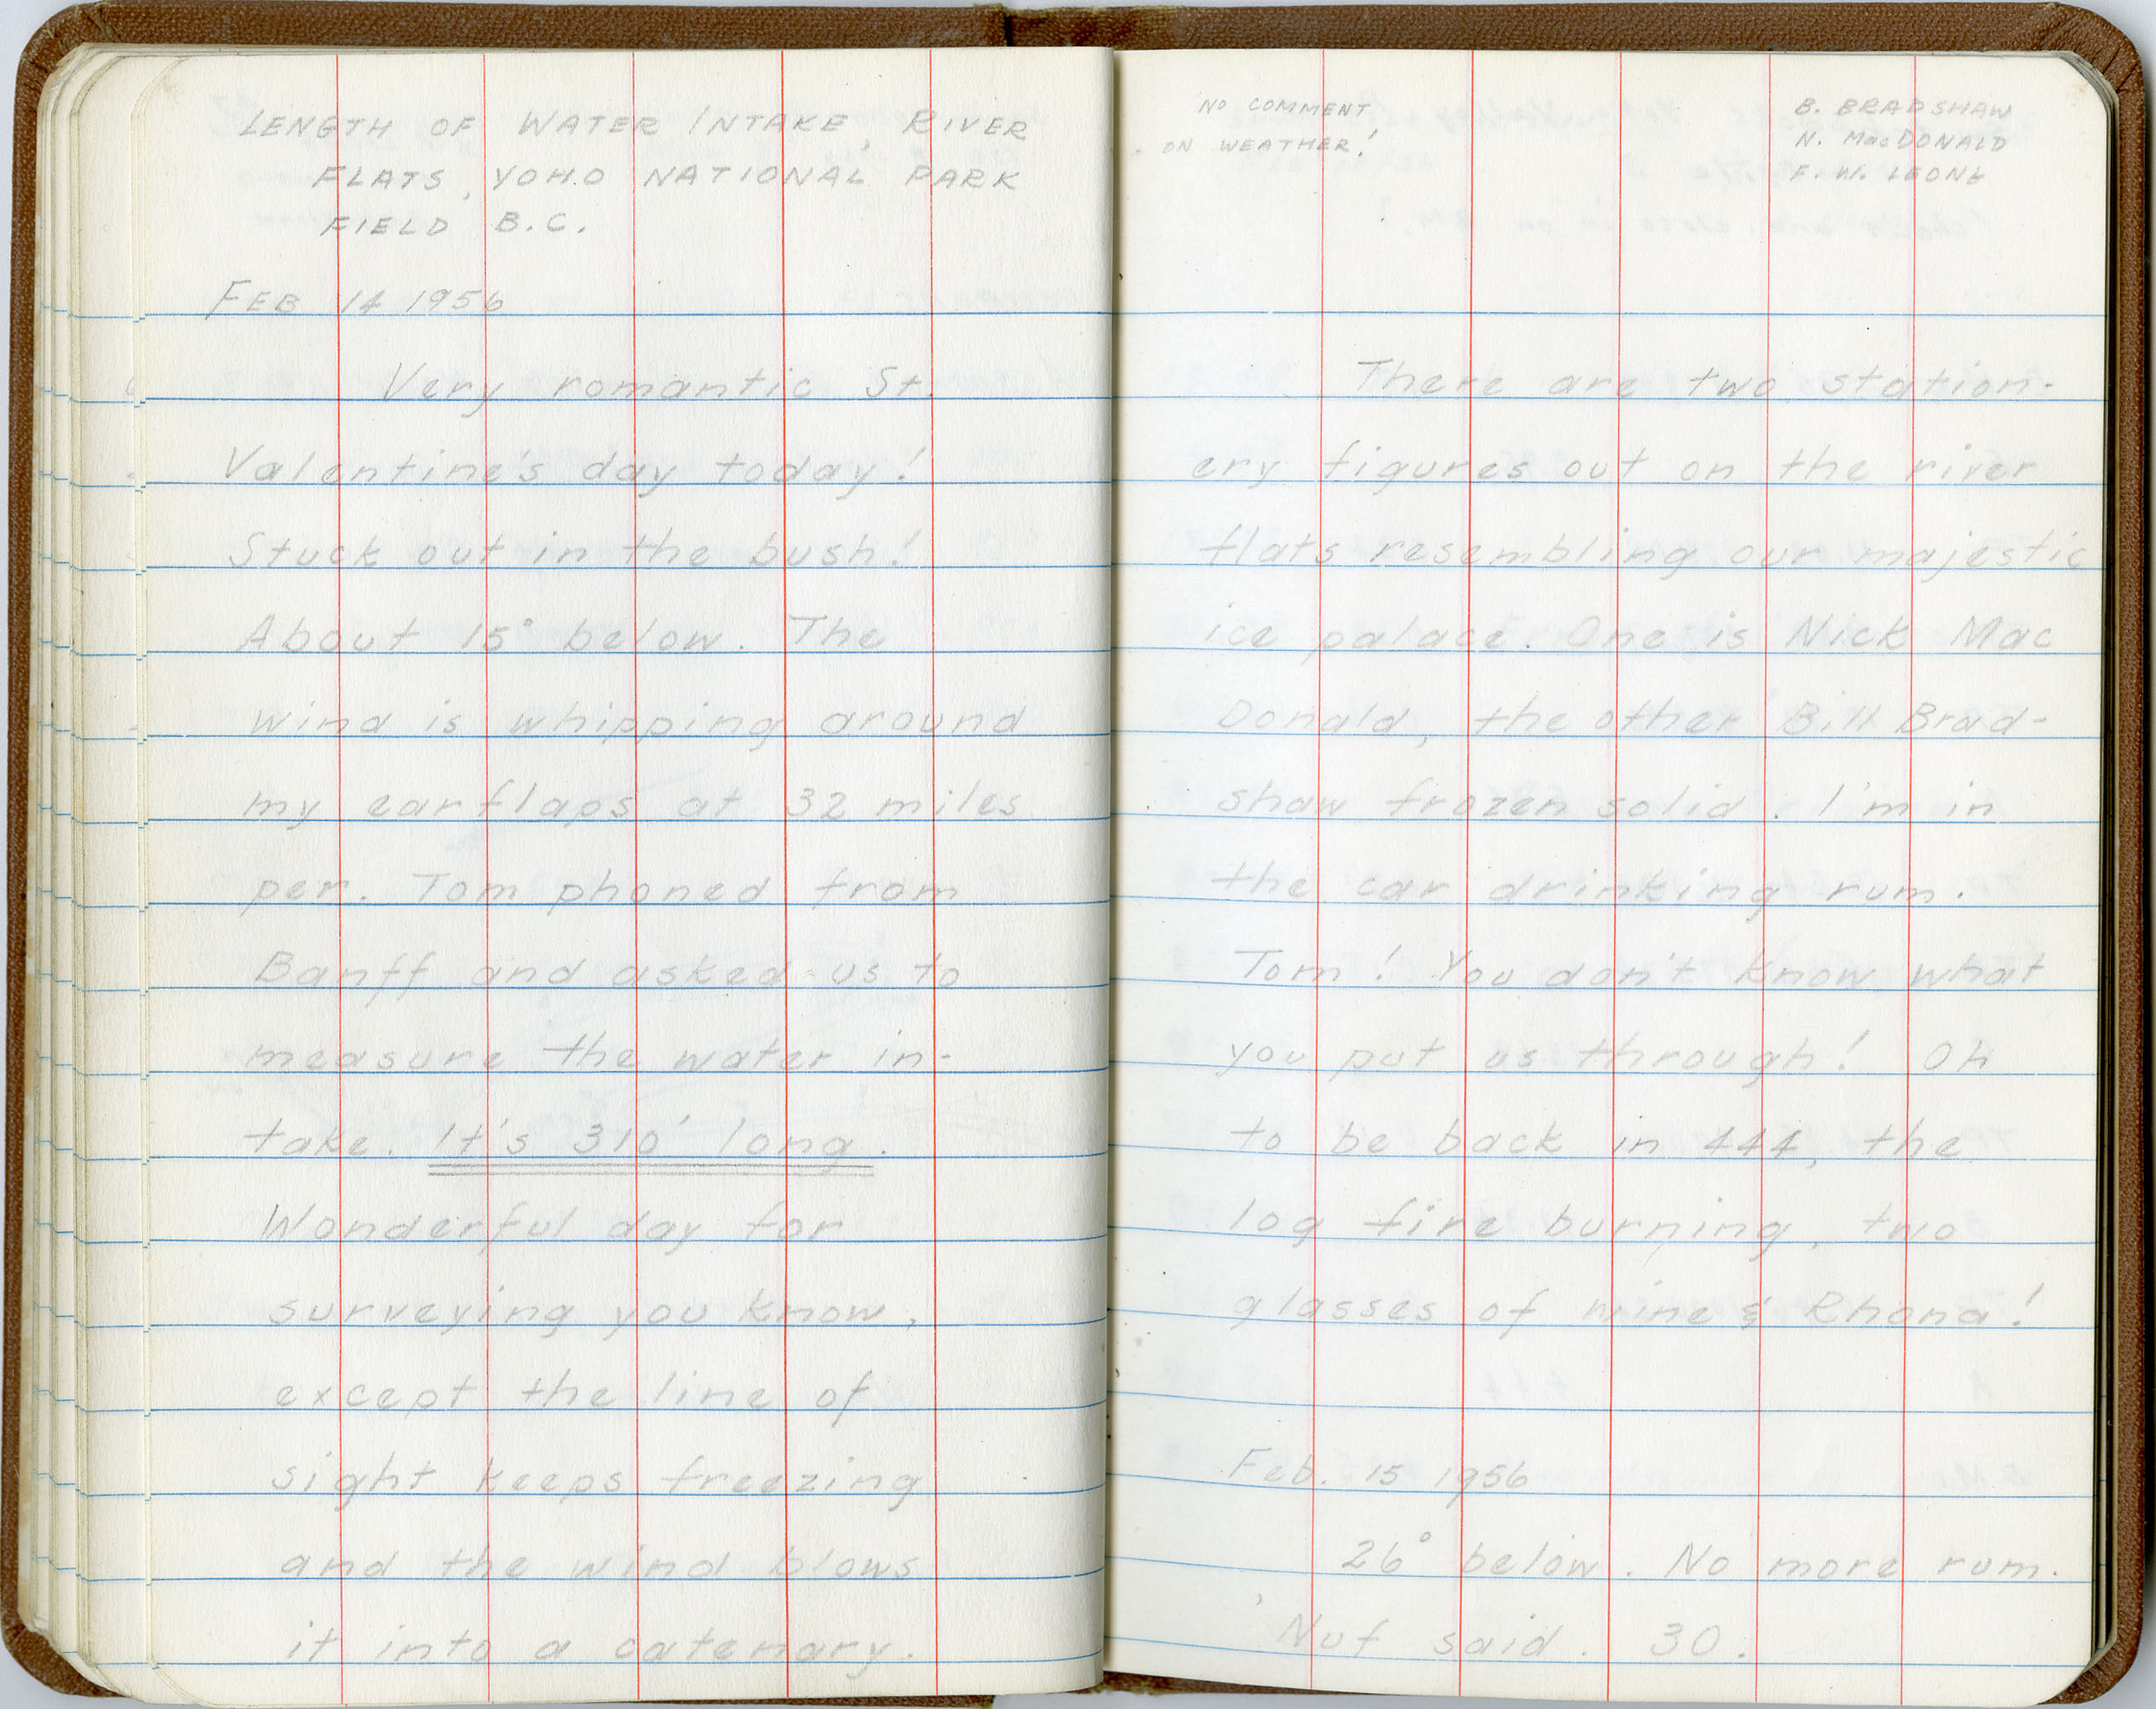 LENGTH OF WATER INTAKE, RIVER
FLATS, YOHO NATIONAL PARK
FIELD B.C.
FEB 14 1956
Very romantic St.
Valentine's day today!
Stuck out in the bush!
About 15° below. The
wind is whipping around
my earflaps at 32 miles
per. Tom phoned from
Banff and asked us to
measure the water in-
take. It's 310' long.
Wonderful day for
surveying you know,
except the line of
sight keeps freezing
and the wind blows
it into a catenary.
NO COMMENT
ON WEATHER!
B. BRADSHAW
N. MacDONALD
F. W. LEONE
There are two station-
ery figures out on the river
flats resembling our majestic
ice palace. One is Nick Mac
Donald, the other Bill Brad-
shaw frozen solid. I'm in
the car drinking rum.
Tom! You don't know what
you put us through! Oh
to be back in 444, the
log fire burning, two
glasses of wine & Rhona!
Feb. 15 1956
26° below. No more rum.
'Nuf said. 30.